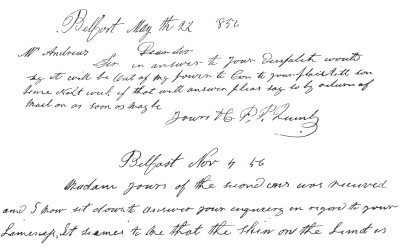 Belfast May th 22 1856
Mr Andrews Dear sir
Sir in answer to your Dispatch would
say it will be Out of my power to Com to your place till som
time Next week if that will answer pleas say so by return of
Mail on as soon as maybe
Yours &c P. P.
Belfast Nov 4 56
Madam yours of the second ons was received
and I now sit down to answer your enquiry in regard to your
Lameness, It seames to me that the skin on the Limb is